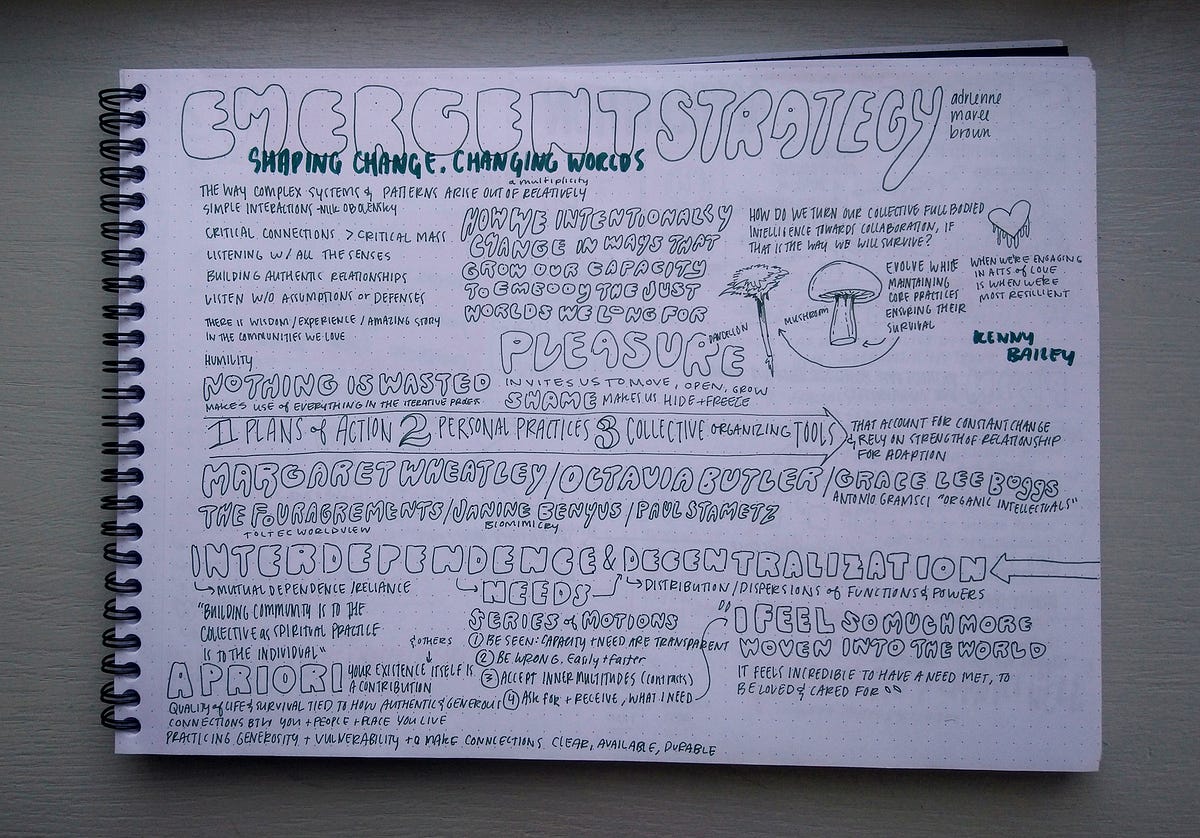 EMERGENT STRATEGY
adrienne
maree
brown
SHAPING CHANGE. CHANGING WORLDS
a multiplicity
THE WAY COMPLEX SYSTEMS & PATTERNS ARISE OUT OF RELATIVELY
SIMPLE INTERACTIONS -NICK OBOLENSKY
CRITICAL CONNECTIONS > CRITICAL MASS
LISTENING W/ ALL THE SENSES
BUILDING AUTHENTIC RELATIONSHIPS
LISTEN W/O ASSUMPTIONS OR DEFENSES
THERE IS WISDOM/EXPERIENCE/AMAZING STORY
IN THE COMMUNITIES WE LOVE
HUMILITY
NOTHING IS WASTED
MAKES USE OF EVERYTHING IN THE ITERATIVE PROCESS
HOW WE INTENTIONALLY
CHANGE IN WAYS THAT
GROW OUR CAPACITY
TO EMBODY THE JUST
WORLDS WE LONG FOR
PLEASURE
INVITES US TO MOVE, OPEN, GROW
SHAME MAKES US HIDE + FREEZE
HOW DO WE TURN OUR COLLECTIVE FULL BODIED
INTELLIGENCE TOWARDS COLLABORATION, IF
THAT IS THE WAY WE WILL SURVIVE?
DANDELION
MUSHROOM
EVOLVE WHILE
MAINTAINING
CORE PRACTICES
ENSURING THEIR
SURVIVAL
WHEN WE'RE ENGAGING
IN ACTS OF LOVE
IS WHEN WE'RE
MOST RESILIENT
KENNY
BAILEY
1 PLANS of ACTION 2 PERSONAL PRACTICES 3 COLLECTIVE ORGANIZING TOOLS
THAT ACCOUNT FOR CONSTANT CHANGE
& RELY ON STRENGTH OF RELATIONSHIP
FOR ADAPTION
MARGARET WHEATLEY/OCTAVIA BUTLER/GRACE LEE BOGGS
ANTONIO GRAMSCI "ORGANIC INTELLECTUALS"
THE FOUR AGREMENTS/JANINE BENYUS/PAUL STAMETZ
TOLTEC WORLDVIEW
BIOMIMICRY
INTERDEPENDENCE & DECENTRALIZATION
MUTUAL DEPENDENCE/RELIANCE
NEEDS
DISTRIBUTION/DISPERSIONS of FUNCTIONS & POWERS
"BUILDING COMMUNITY IS TO THE
COLLECTIVE as SPIRITUAL PRACTICE
IS TO THE INDIVIDUAL"
SERIES of MOTIONS
1 BE SEEN: CAPACITY + NEED ARE TRANSPARENT
2 BE WRONG. Easily + faster
3 ACCEPT INNER MULTITUDES
4 ASK FOR + RECEIVE, WHAT I NEED
"I FEEL SO MUCH MORE
WOVEN INTO THE WORLD
IT FEELS INCREDIBLE TO HAVE A NEED MET, TO
BE LOVED & CARED FOR"
& OTHERS
A PRIORI YOUR EXISTENCE ITSELF IS
A CONTRIBUTION
QUALITY of LIFE & SURVIVAL TIED TO HOW AUTHENTIC & GENEROUS
CONNECTIONS BTW YOU + PEOPLE + PLACE YOU LIVE
PRACTICING GENEROSITY + VULNERABILITY to MAKE CONNECTIONS CLEAR, AVAILABLE, DURABLE